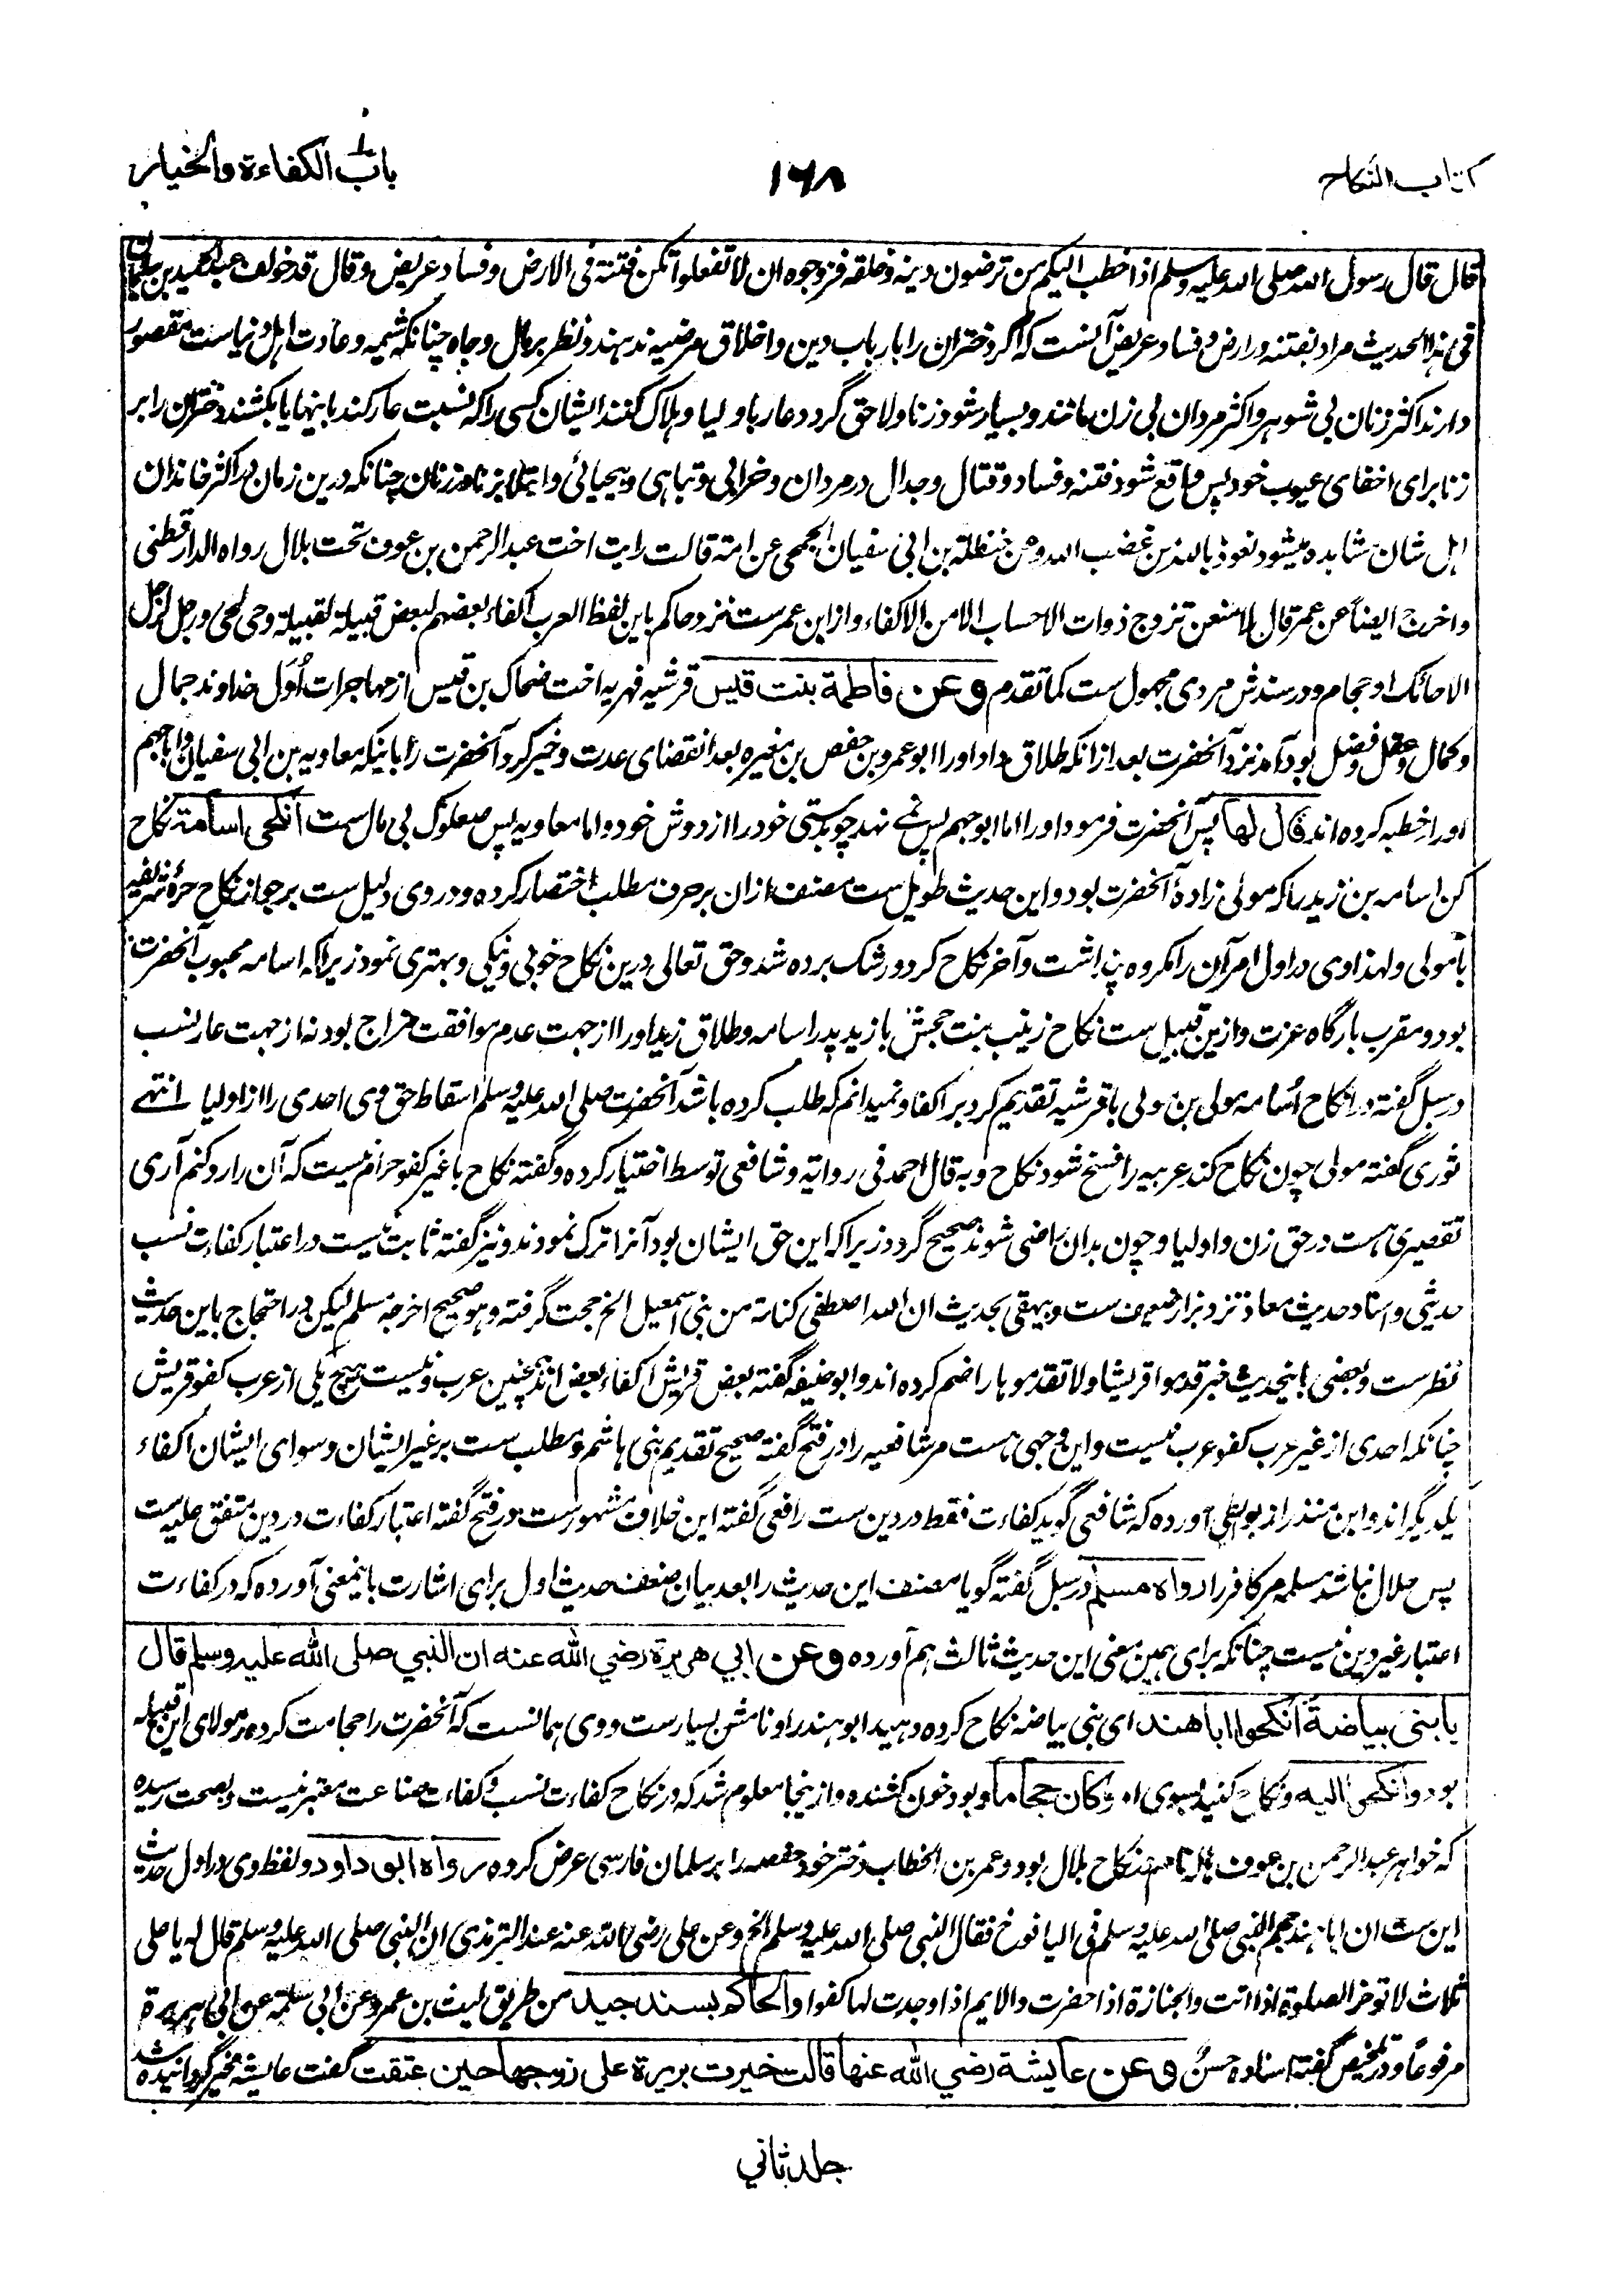 كتاب النكاح
١٦٨
باب الكفاءة والخيار
قال قال رسول الله صلى الله عليه وسلم اذا خطب اليكم من ترضون دينه وخلقه فزوجوه ان لا تفعلوا تكن فتنة فى الارض وفساد عريض وقال قد خولف عبد الحميد بن سليمان
فى هذا الحديث مراد بفتنه در ارض و فساد عريض آنست كه اگر دختران را بارباب دين و اخلاق مرضيه ندهند و نظر بر مال و جاه چنانكه شميه و عادت اهل دنياست مقصور
دارند اكثر زنان بى شوهر و اكثر مردان بى زن مانند و بسيار شود زنا و لاحق گردد عار باوليا و هلاك كنند ايشان كسى را كه نسبت عار كند باينها يا بكشند دختران را بر
زنا براى اخفاى عيوب خود پس واقع شود فتنه و فساد و قتال و جدال در مردان و خرابى و تباهى و بيحيائى و ابتلا بزنا در زنان چنانكه درين زمان در اكثر خاندان
اهل شان مشاهده ميشود نعوذ بالله من غضب الله وعن حنظلة بن ابى سفيان الجمحى عن امه قالت رايت اخت عبد الرحمن بن عوف تحت بلال رواه الدارقطنى
واخرج ايضاً عن عمر قال لا منعن تزوج ذوات الاحساب الا من الاكفاء و از ابن عمرست نزد حاكم باين لفظ العرب اكفاء بعضهم لبعض قبيلة لقبيلة وحى لحى ورجل لرجل
الا حائك او حجام و در سندش مردى مجهول ست كما تقدم وعن فاطمة بنت قيس قرشيه فهريه اخت ضحاك بن قيس از مهاجرات اُوَل خداوند جمال
و كمال و عقل و فضل بود آمد نزد آنحضرت بعد از انكه طلاق داد او را ابو عمرو بن حفص بن مغيره بعد انقضاى عدت و خبر كرد آنحضرت را باينكه معاويه بن ابى سفيان و ابا جهم
او را خطبه كرده اند قال لها پس آنحضرت فرمود او را اما ابو جهم پس نمى نهد چوبدستى خود را از دوش خود و اما معاويه پس صعلوك بى مال ست انكحى اسامة نكاح
كن اسامه بن زيد را كه مولى زادهٔ آنحضرت بود و اين حديث طويل ست مصنف ازان بر حرف مطلب اختصار كرده و در وى دليل ست بر جواز نكاح حرهٔ شريفه
با مولى و لهذا وى در اول امر آن را مكروه پنداشت و آخر نكاح كرد و رشك برده شد و حق تعالى درين نكاح خوبى و نيكى و بهترى نمود زيرا كه اسامه محبوب آنحضرت
بود و مقرب بارگاه عزت و ازين قبيل ست نكاح زينب بنت جحش با زيد پدر اسامه و طلاق زيد او را از جهت عدم موافقت مزاج بود نه از جهت عار نسب
در سبل گفته در انكاح اُسامه مولى بن مولى با قرشيه تقديم كرد بر اكفا و نميدانم كه طلب كرده باشد آنحضرت صلى الله عليه وسلم اسقاط حق وى احدى را از اوليا انتهے
ثورى گفته مولى چون نكاح كند عربيه را فسخ شود نكاح و به قال احمد فى رواية و شافعى توسط اختيار كرده و گفته نكاح با غير كفو حرام نيست كه آن را رد كنم آرى
تقصيرى هست در حق زن و اوليا و چون بدان راضى شوند صحيح گردد زيرا كه اين حق ايشان بود آنرا ترك نمودند و نيز گفته ثابت نيست در اعتبار كفاءت نسب
حديثى و اسناد حديث معاذ نزد بزار ضعيف ست و بيهقى بحديث ان الله اصطفى كنانة من بنى اسمعيل الخ حجت گرفته وهو صحيح اخرجه مسلم ليكن در احتجاج باين حديث
نظرست و بعضى باينحديث خبر قدموا قريشا ولا تقدموها را ضم كرده اند و ابو حنيفه گفته بعض قريش اكفاء بعض اند همچنين عرب و نيست هيچ يكى از عرب كفو قريش
چنانكه احدى از غير عرب كفو عرب نيست و اين وجهى هست مر شافعيه را در فتح گفته صحيح تقديم بنى هاشم و مطلب ست بر غير ايشان و سواى ايشان اكفاء
يكديگر اند و ابن منذر از بويطى آورده كه شافعى گويد كفاءت فقط در دين ست رافعى گفته اين خلاف مشهورست و در فتح گفته اعتبار كفاءت در دين متفق عليه ست
پس حلال نباشد مسلمه مر كافر را رواه مسلم در سبل گفته گويا مصنف اين حديث را بعد بيان ضعف حديث اول براى اشارت باينمعنى آورده كه در كفاءت
اعتبار غير دين نيست چنانكه براى همين معنى اين حديث ثالث هم آورده وعن ابي هريرة رضي الله عنه ان النبي صلى الله عليه وسلم قال
يا بنى بياضة انكحوا ابا هند اى بنى بياضه نكاح كرده دهيد ابو هند را و نامش يسارست و وى همانست كه آنحضرت را حجامت كرده و مولاى اين قبيله
بود وانكحوا اليه و نكاح كنيد بسوى او وكان حجاما و بود خون كشنده و ازينجا معلوم شد كه در نكاح كفاءت نسب و كفاءت صناعت معتبر نيست و بصحت رسيده
كه خواهر عبد الرحمن بن عوف هاله نام در نكاح بلال بود و عمر بن الخطاب دختر خود حفصه را بر سلمان فارسى عرض كرده رواه ابو داود و لفظ وى در اول حديث
اين ست ان ابا هند حجم النبى صلى الله عليه وسلم فى اليافوخ فقال النبى صلى الله عليه وسلم الخ وعن على رضى الله عنه عند الترمذى ان النبى صلى الله عليه وسلم قال له يا على
ثلاث لا توخر الصلوة اذا اتت والجنازة اذا حضرت والايم اذا وجدت لها كفوا والحاكم بسند جيد من طريق ليث بن عمرو عن ابى سلمة عن ابى هريرة
مرفوعاً و در تلخيص گفته اسناده حسنٌ وعن عايشة رضي الله عنها قالت خيرت بريرة على زوجها حين عتقت گفت عايشه مخير گردانيده شد
جلد ثاني